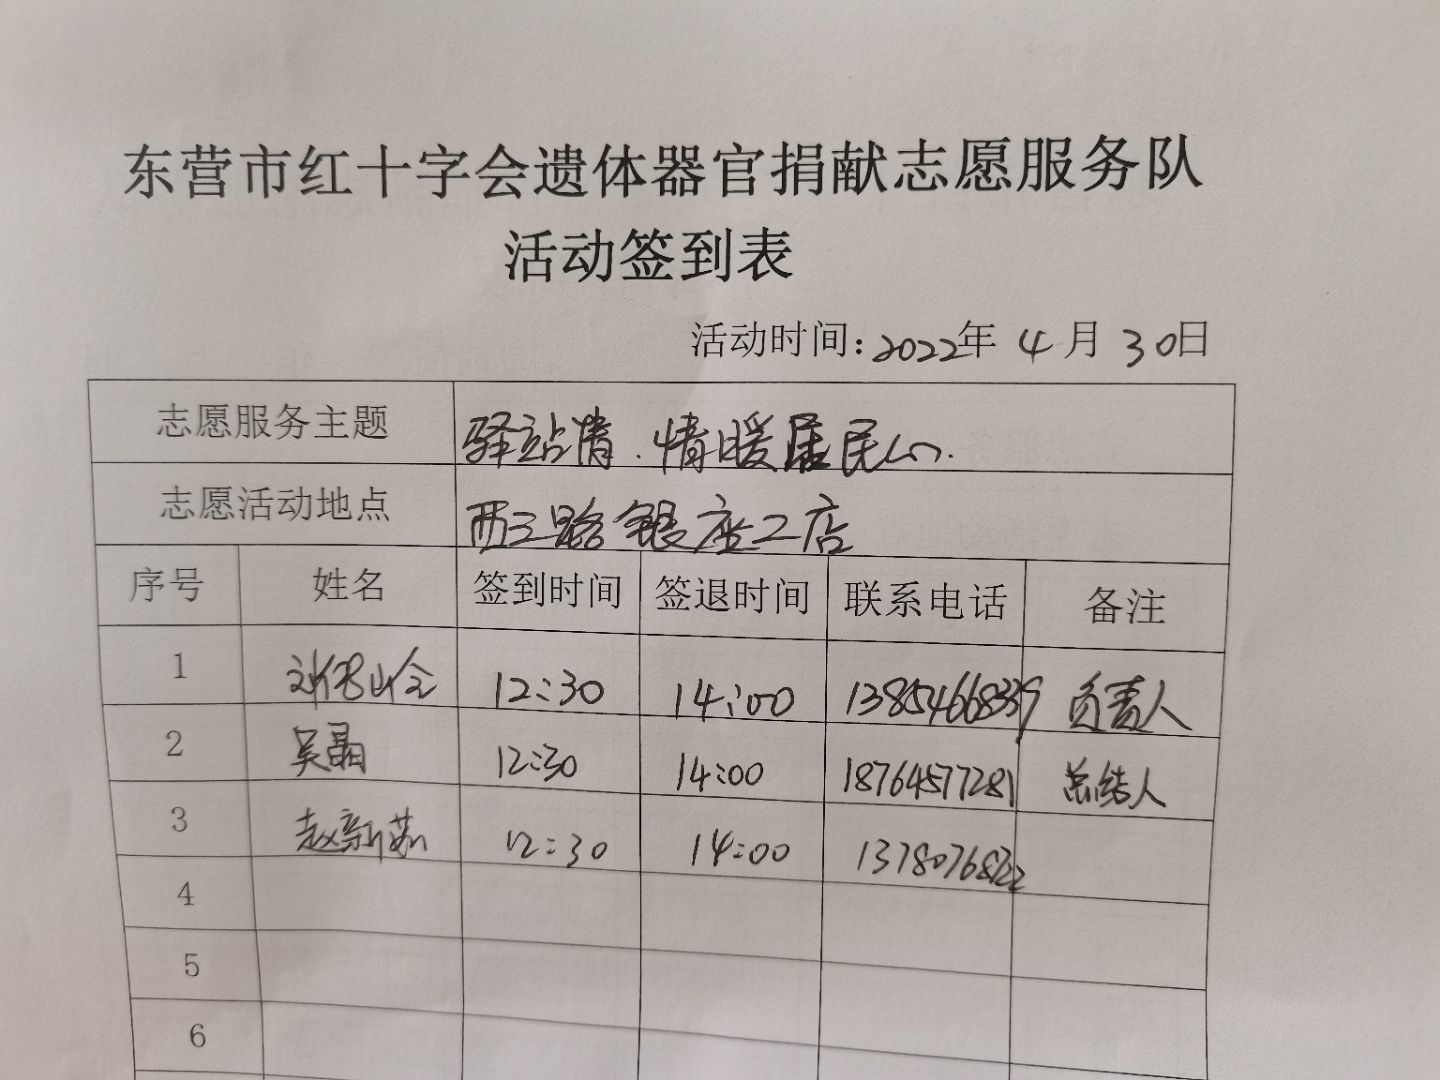 东营市红十字会遗体器官捐献志愿服务队
活动签到表
活动时间：2022年 4 月 30日
志愿服务主题 驿站情.情暖居民心.
志愿活动地点 西三路银座工店
序号 姓名 签到时间 签退时间 联系电话 备注
1 12:30 14:00 13854668339 负责人
2 吴晶 12:30 14:00 18764577281 总结人
3 赵新 12:30 14:00 13780768722
4
5
6